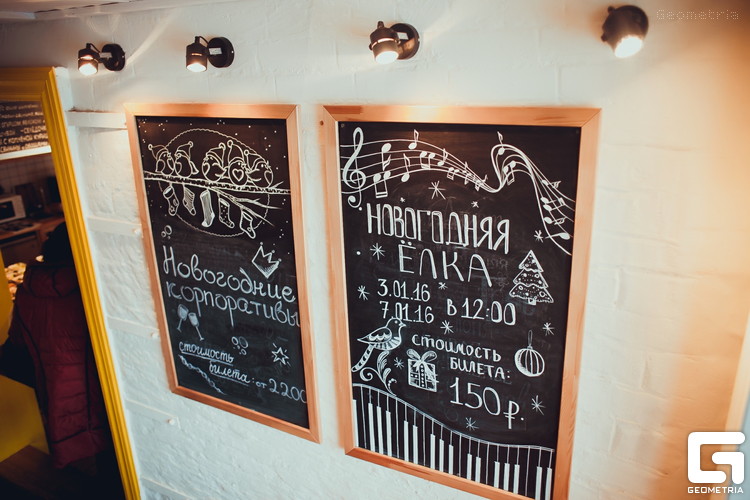 Geometria
Новогодние
корпоративы
стоимость
билета: от 2200
НОВОГОДНЯЯ
ЁЛКА
3.01.16
7.01.16 в 12:00
стоимость
билета:
150 ₽.
GEOMETRIA